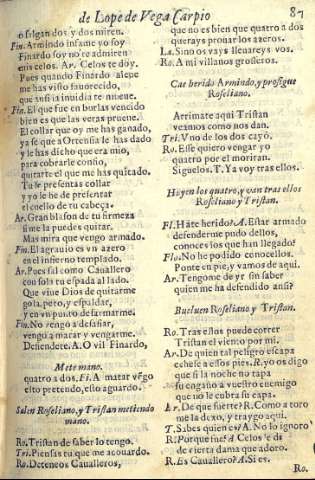 de Lope de Vega Carpio 87
o salgan dos y dos miren.
Fin. Armindo infame yo soy
Finardo soy no te admiren
mis celos. Ar. Celos te doy.
Pues quando Finardo
me has visto fauorecido,
que ansi a inuidia te mueue.
Fin. El que fue en burlas vencido
bien es que las veras prueue.
El collar que oy me has ganado,
ya se que a Ortensia le has dado
y le has dicho que era mio,
para cobrarle confio,
quitarte el que me has quitado.
Tu le presentas collar
y yo le he de presentar
el cuello de tu cabeça.
Ar. Gran blason de tu firmeza
si me la puedes quitar.
Mas mira que vengo armado.
Fin. El agrauio es vn azero
en el infierno templado.
Ar. Pues sal como Cauallero
con sola tu espada al lado.
Que viue Dios de quitarme
gola, peto, y espaldar,
y en vn punto desarmarme.
Fin. No vengo a desafiar,
vengo a matar y vengarme.
Defiendete. A. O vil Finardo,
Mete mano.
quatro a dos. Fi. A matar vẽgo
esto pretendo, esso aguardo.
Salen Roseliano, y Tristan metiendo
mano.
Ro. Tristan de saber lo tengo.
Tri. Piensas tu que me acouardo.
Ro. Deteneos Caualleros,
que no es bien que quatro a dos
querays prouar los azeros.
La. Sino os vays lleuareys vos.
Ro. A mi villanos groseros.
Cae herido Armindo, y prosigue
Roseliano.
Arrimate aqui Tristan
veamos como nos dan.
Tri. Vno de los dos cayó,
Ro. Esse quiero vengar yo
quatro por el moriran.
Siguelos. T. Ya voy tras ellos.
Huyen los quatro, y van tras ellos
Roseliano y Tristan.
Fl. Hate herido? A. Estar armado
defenderme pudo dellos,
conoces los que han llegado?
Flo. No he podido conocellos.
Ponte en pie, y vamos de aqui.
Ar. Tengome de yr sin saber
quien me ha defendido ansi?
Bueluen Roseliano y Tristan.
Ro. Tras ellos puede correr
Tristan el viento por mi.
Ar. De quien tal peligro escapa
echese a essos pies. R. yo os digo
que si la noche no tapa
su engaño a vuestro enemigo
que no le cubra su capa.
Ar. De que suerte? R. Como a toro
me la dexo, y traygo aqui.
T. Sabes quien es? A. No lo ignoro
R. Porque fue? A. Celos le di
de cierta dama que adoro.
R. Es Cauallero? A. Si es.
Ro.